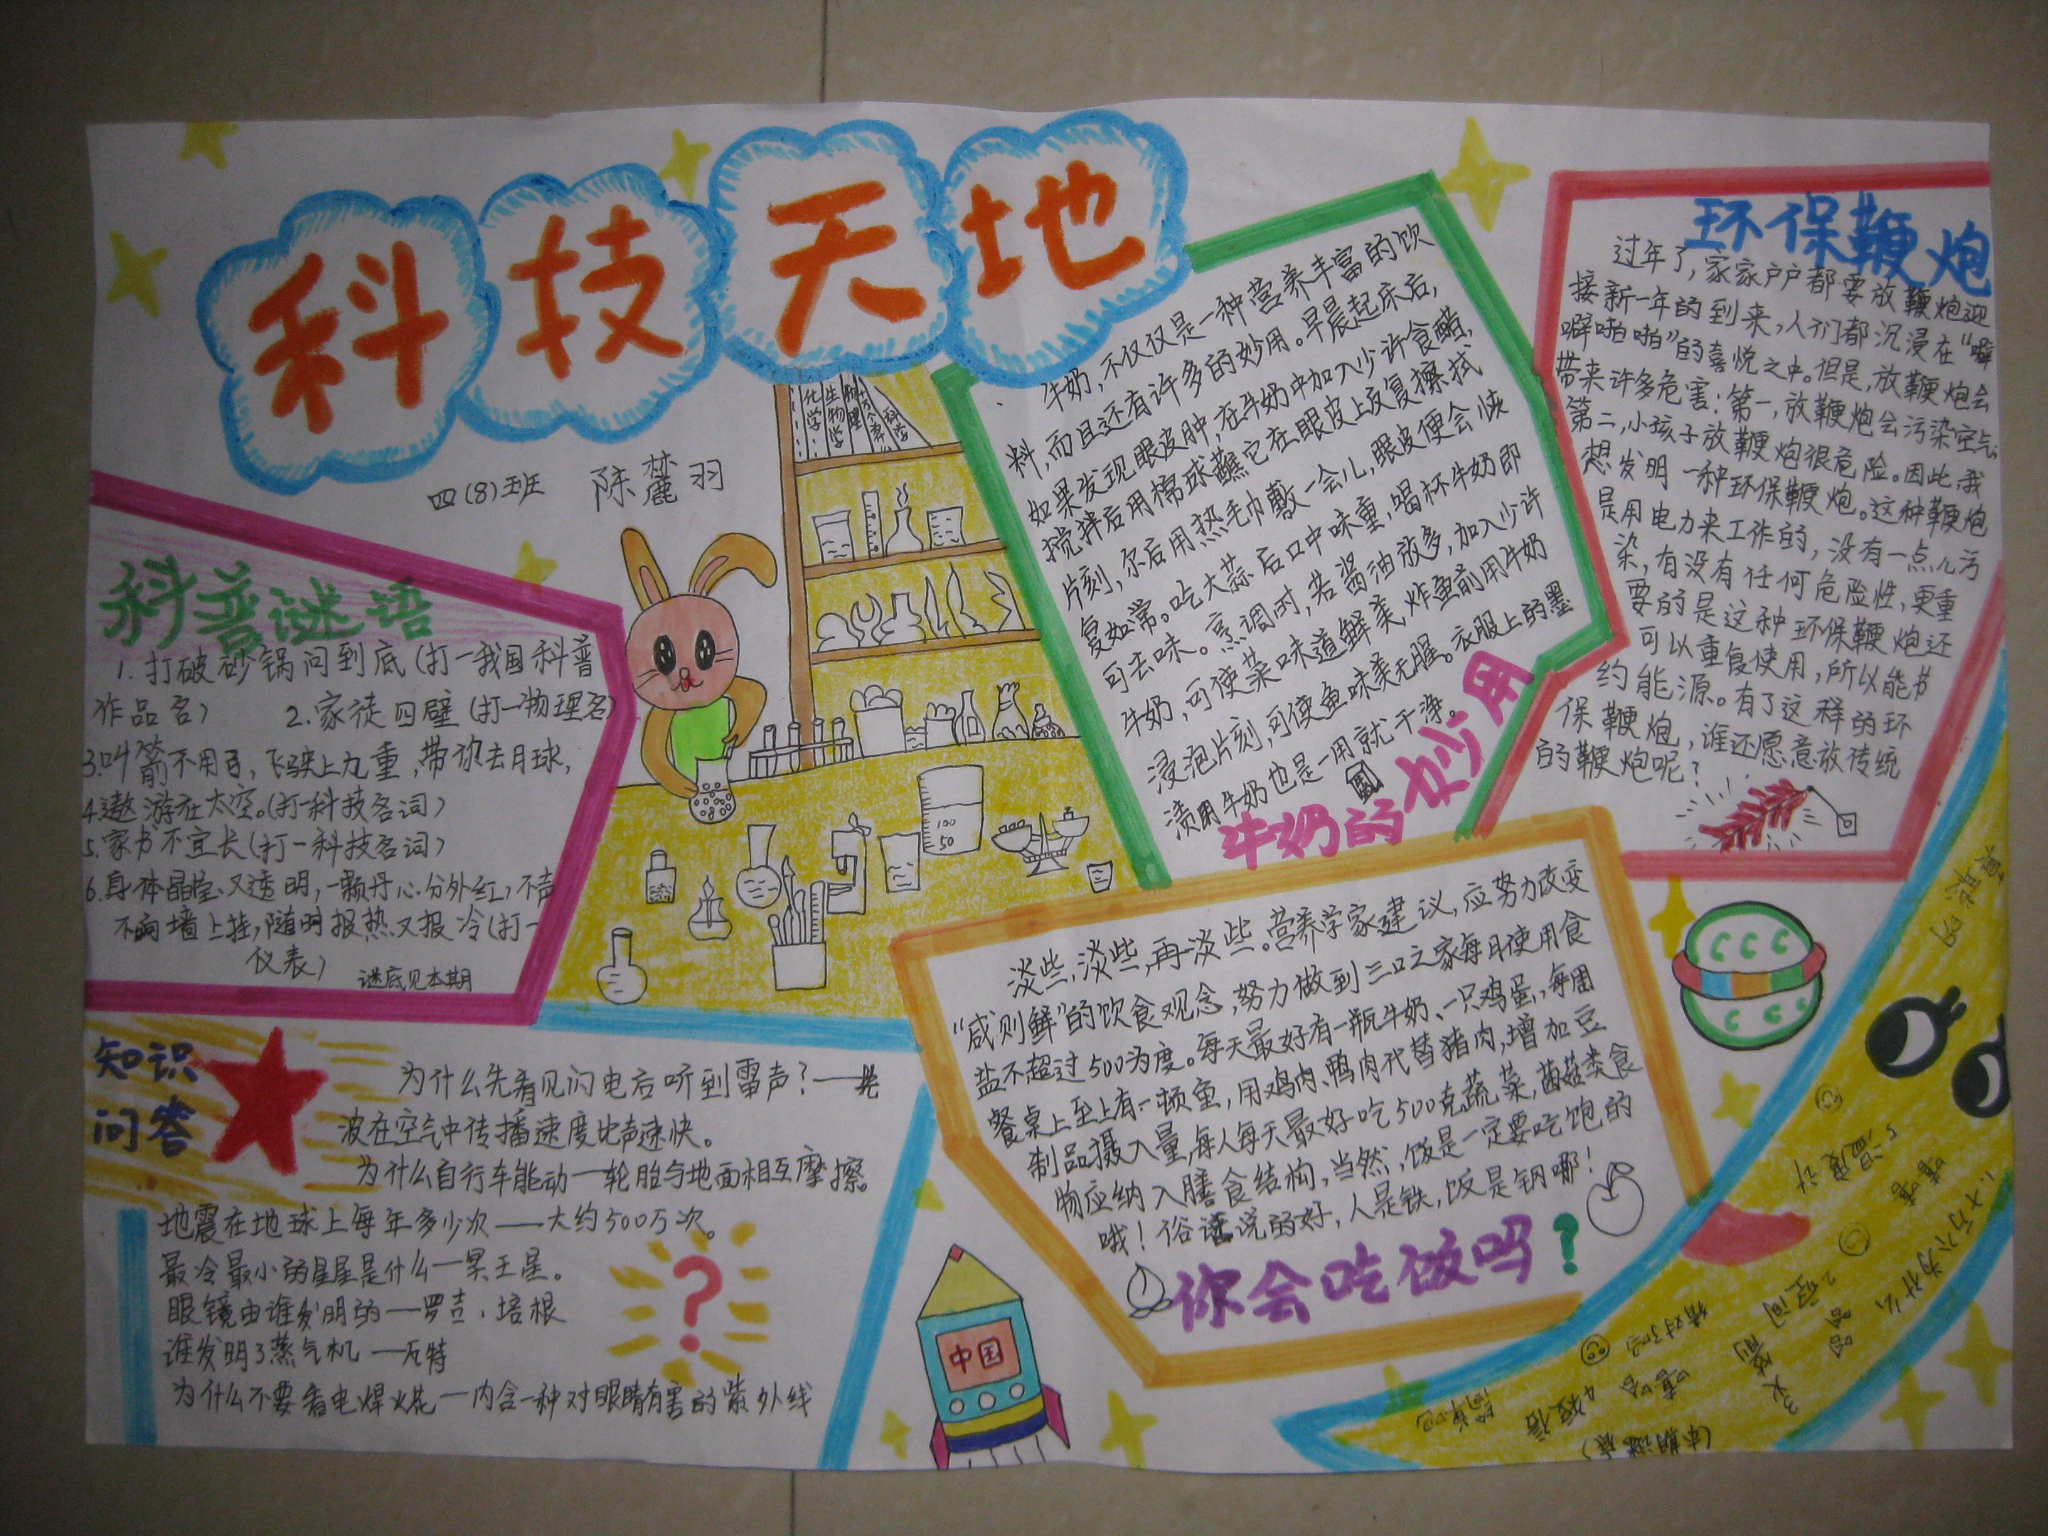 科技天地
四(8)班 陈麓羽
化学
生物学
物理
科学
科普谜语
1.打破砂锅问到底(打一我国科普
作品名) 2.家徒四壁(打一物理名)
3.叫箭不用弓,飞驶上九重,带你去月球,
4.遨游在太空。(打一科技名词)
5.家书不宜长(打一科技名词)
6.身体晶莹又透明,一颗丹心分外红,不声
不响墙上挂,随明报热又报冷(打一
仪表) 谜底见本期
知识
问答
为什么先看见闪电后听到雷声?——光
波在空气中传播速度比声速快。
为什么自行车能动—轮胎与地面相互摩擦。
地震在地球上每年多少次——大约500万次。
最冷最小的星星是什么—冥王星。
眼镜由谁发明的—罗吉·培根
谁发明了蒸气机—瓦特
为什么不要看电焊火花—内含一种对眼睛有害的紫外线
?
中国
100
50
牛奶,不仅仅是一种营养丰富的饮
料,而且还有许多的妙用。早晨起床后,
如果发现眼皮肿,在牛奶中加入少许食醋,
搅拌后用棉球蘸它在眼皮上反复擦拭
片刻,尔后用热毛巾敷一会儿,眼皮便会恢
复如常。吃大蒜后口中味重,喝杯牛奶即
可去味。烹调时,若酱油放多,加入少许
牛奶,可使菜味道鲜美,炸鱼前用牛奶
浸泡片刻,可使鱼味美无腥。衣服上的墨
渍用牛奶也是一用就干净。
牛奶的妙用
环保鞭炮
过年了,家家户户都要放鞭炮迎
接新一年的到来,人们都沉浸在“噼
噼啪啪”的喜悦之中。但是,放鞭炮会
带来许多危害:第一,放鞭炮会污染空气;
第二,小孩子放鞭炮很危险。因此,我
想发明一种环保鞭炮。这种鞭炮
是用电力来工作的,没有一点儿污
染,有没有任何危险性,更重
要的是这种环保鞭炮还
可以重复使用,所以能节
约能源。有了这样的环
保鞭炮,谁还愿意放传统
的鞭炮呢?
淡些,淡些,再淡些。营养学家建议,应努力改变
“咸则鲜”的饮食观念,努力做到三口之家每月使用食
盐不超过500为度。每天最好有一瓶牛奶、一只鸡蛋,每周
餐桌上至上有一顿鱼,用鸡肉、鸭肉代替猪肉,增加豆
制品摄入量,每人每天最好吃500克蔬菜,菌菇类食
物应纳入膳食结构,当然,饭是一定要吃饱的
哦!俗话说的好,人是铁,饭是钢哪!
你会吃做吗?
1.十万个为什么
2.空间
3.火箭
4.短信
5.温度计